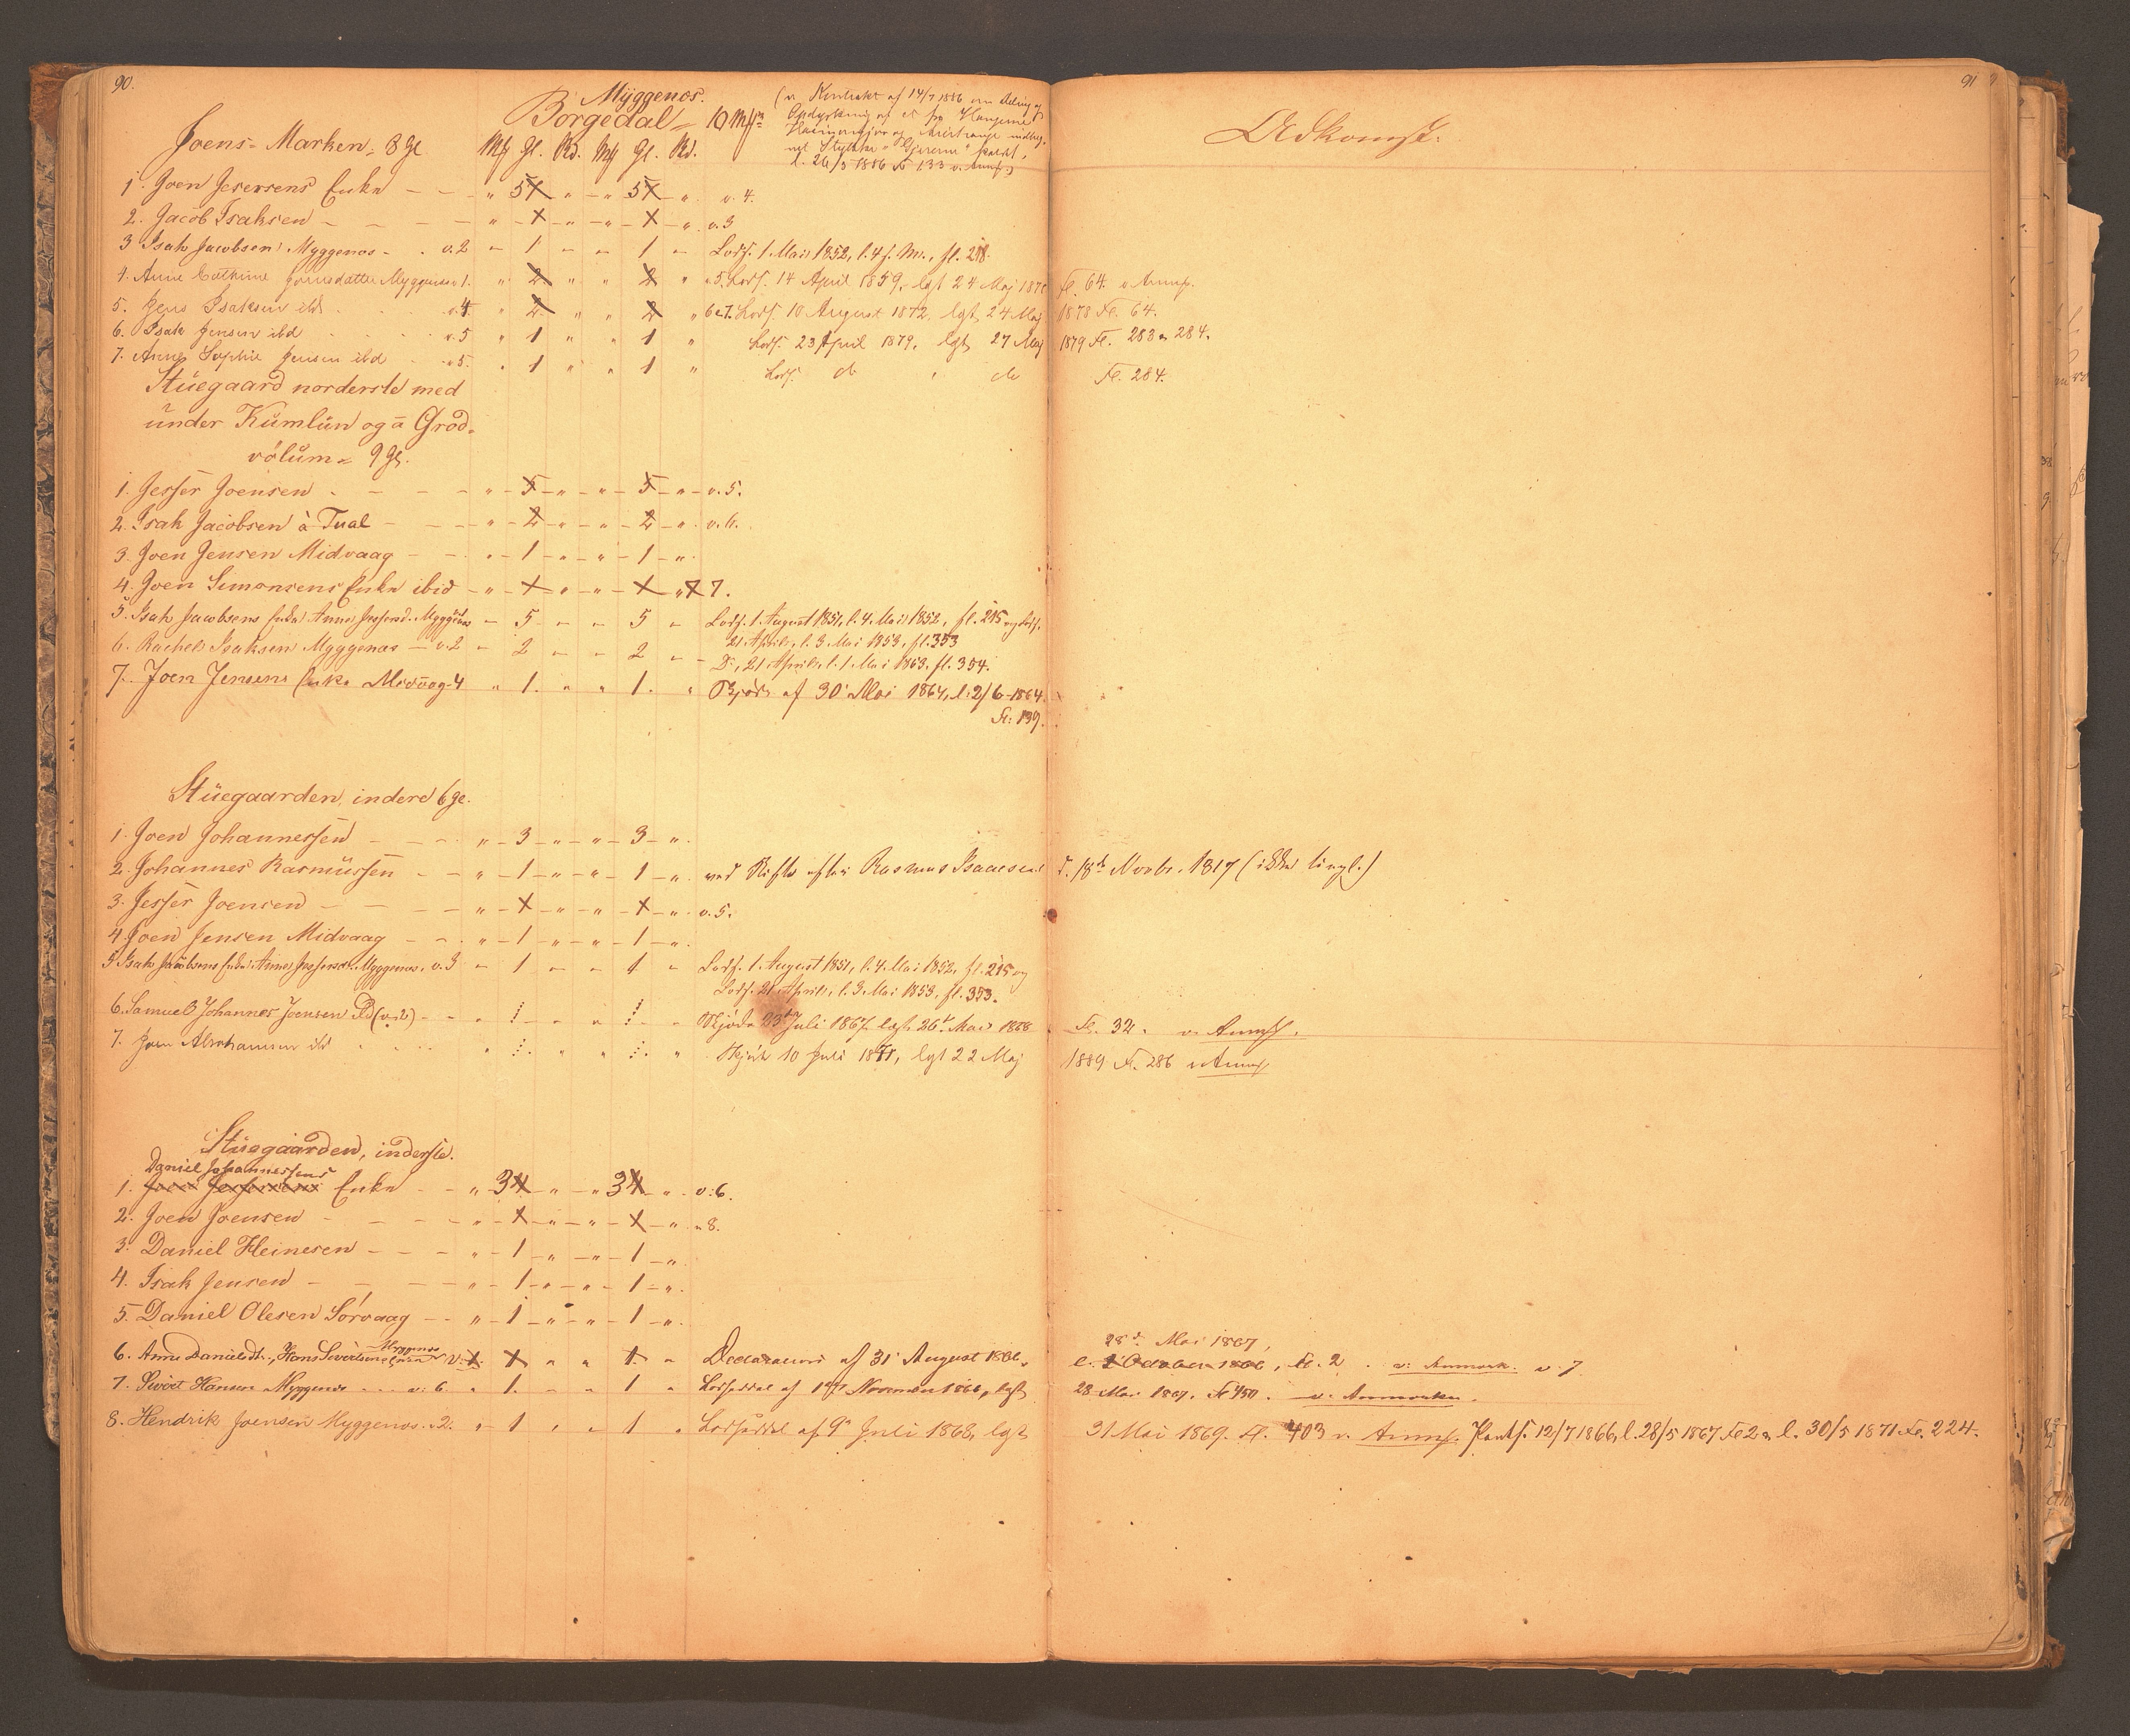 90.
Myggenæs.
Borgedal = 10 Mk
(v Kontrakt af 14/7 1886 om Deling og
Opdyrkning af et fra Haugerne
l. 26/5 1886 Fo 133 v. Anmf)
Joens-Marken = 8 gl.
Mk Gl. Sk. Mk Gl. Sk.
1. Joen Jesersens Enke – – " 5 4 " – " 5 4 " v. 4.
2. Jacob Isaksen – – – – " – 1 – " – " – 1 – " v. 3
3 Isak Jacobsen, Myggenæs – . v. 2 – 1 – – 1 – Lods. 1. Mai 1852, l. 4 s. M., fl. 218.
4. Anne Cathrine Joensdatter Myggenæs v. 1. " 2 " " 2 " v. 5. Lods. 14 April 1859, lgst 24 Maj 1878 Fo. 64. v Anmf.
5. Jens Isaksen ibd . . . v. 4 " 2 " " 2 " v 6 & 7. Lods. 10 August 1872, lgst 24 Maj 1878 Fo. 64.
6. Isak Jensen ibd v. 5 " 1 " " 1 " Lods. 23 April 1879, lgst 27 Maj 1879 Fo. 283 & 284.
7. Anne Sophie Jensen ibd v. 5. " 1 " " 1 " Lods. do " do Fo. 284.
Stuegaard norderste med
under Kumlun og a Grod-
völum = 9 gl.
1. Jesser Joensen . – – – " – 5 – " – " – 5 – " – v. 5.
2. Isak Jacobsen à Tual – – – " – 2 – " – " – 2 – " – v. 6.
3. Joen Jensen Midvaag – – . " – 1 – " – " – 1 – "
4. Joen Simonsens Enke ibid – " – 1 – " – " – 1 – " v 7.
5. Isak Jacobsens Enke, Anne Jessersd. Myggenæs – 5 – – 5 – Lods. 1. August 1851, l. 4. Mai 1852, fl. 215 og Lods.
21. April, l. 3. Mai 1853, fl. 353
6. Rachel Isaksen Myggenæs – v. 2 – 2 – – 2 – – Do, 21 April, l. 1. Mai 1863, fl. 354.
7. Joen Jensens Enke Midvaag v. 4 " 1. " " 1. " Skjøde af 30 Mai 1864, l. 2/6 – 1864.
Fo. 139.
Stuegaarden, indere 6 gl.
1. Joen Johannessen – – – . " – 3 – " – " – 3 – " .
2. Johannes Rasmussen – – " – 1 – " – " – 1 – " ved Skifte efter Rasmus Isaacsen d. 18de Novbr. 1817 (ikke tingl.)
3. Jesser Joensen – – – – " – 1 – " – " – 1 – " . v. 5.
4. Joen Jensen Midvaag – – . " – 1 – " – " – 1 – " .
5. Isak Jacobsens Enke, Anne Jessersd. Myggenæs, v. 3 – 1 – – 1 – Lods. 1. August 1851, l. 4. Mai 1852, fl. 215 og
Lods. 21 April, l. 3. Mai 1853, fl. 353.
6. Samuel Johannes Joensen ibd (v. 2) – – Skjøde 23de Juli 1867, lgst 26de Mai 1868 Fo. 32. v. Anmf.
7. Joen Abrahamsen ibd Skjøde 10 Juli 1871, lgst 22 Maj 1889 Fo. 286 v Anmf
Stuegaarden, inderste.
Daniel Johannessens
1. Joen Jessersens Enke – – " 3 4 " – " 3 4 – " . v. 6.
2. Joen Joensen – – – – " – 1 – " – " – 1 – " . v 8.
3. Daniel Heinesen – – – " – 1 – " – " – 1 – "
4. Isak Jensen – – – – " – 1 – " – " – 1 – " .
5. Daniel Olesen Sørvaag – – " – 1 – " – " – 1 – " .
6. Anne Danielsdt., Hans Sivertsens Enke Myggenæs v. 1. 1 " " 1 " Declaration af 31 August 1866, l. 2 October 1866, 28de Mai 1867, Fo. 2 . v. Anmærk. v. 7
7. Sivert Hansen Myggenæs – – – v. 6. " 1. – " 1 " Lodseddel af 1ste November 1866, lgst 28 Mai 1867. Fo 450. v. Anmærkn.
8. Hendrik Joensen Myggenæs. v. 2. " 1 " " 1 " Lodseddel af 9de Juli 1868, lgst 31 Mai 1869. Fo. 403 v. Anmf. Pantf. 12/7 1866, l. 28/5 1867 Fo 2 & l. 30/5 1871 Fo. 224.
91
Adkomst.